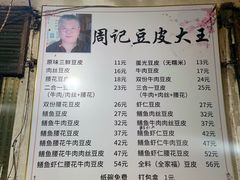 周记豆皮大王
原味三鲜豆皮 11元
肉丝豆皮 16元
腰花豆皮 18元
三合一豆皮 23元
(牛肉/肉丝+腰花)
双份腰花豆皮
鳝鱼豆皮 27元
鳝鱼牛肉豆皮
鳝鱼腰花豆皮
鳝鱼虾仁豆皮
鳝鱼腰花牛肉豆皮
鳝鱼腰花牛肉肉丝豆皮 54元
蛋光豆皮(无糯米) 13元
牛肉豆皮 17元
双份牛肉豆皮 24元
三合一豆皮 25元
(牛肉/肉丝+虾仁)
虾仁豆皮 27元
虾仁牛肉豆皮 32元
鳝鱼肉丝豆皮 32元
虾仁腰花豆皮
鳝鱼虾仁牛肉豆皮 47元
鳝鱼虾仁腰花豆皮 52元
全料(全家福)豆皮 56元
纸碗免费
打包盒 1元